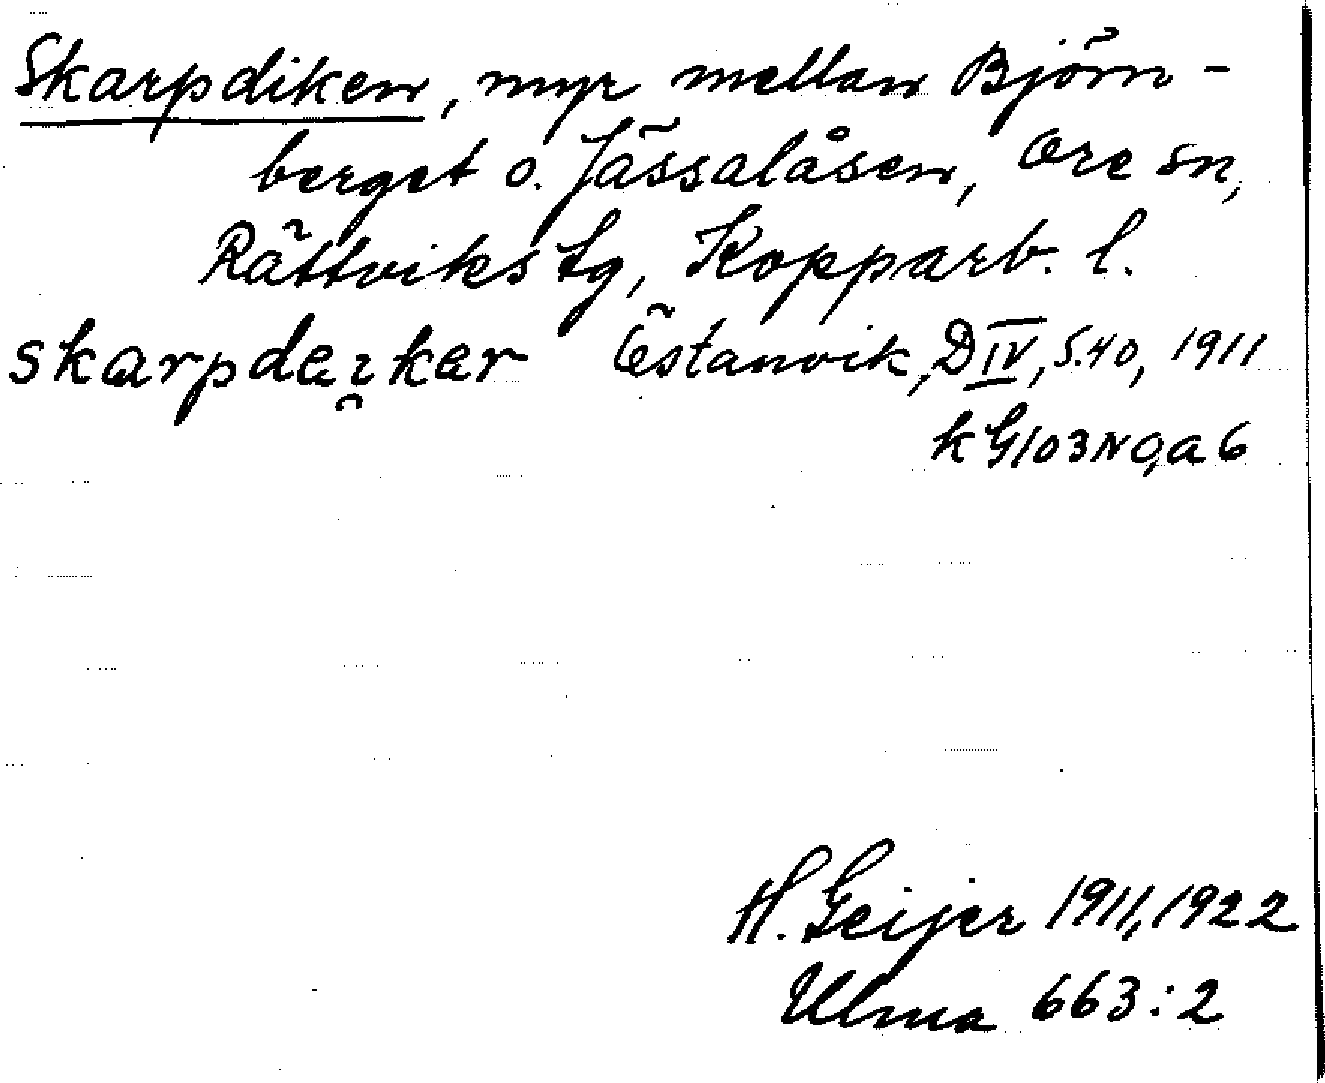 Skarpdiken, myr mellan Björn-
berget o. Jässalåsen, Ore sn,
Rättviks tg, Kopparb. l.
skarpdeıker Östanvik, D IV, S.40, 1911
k G103NO,a6
H. Geijer 1911, 1922
Ulma 663:2